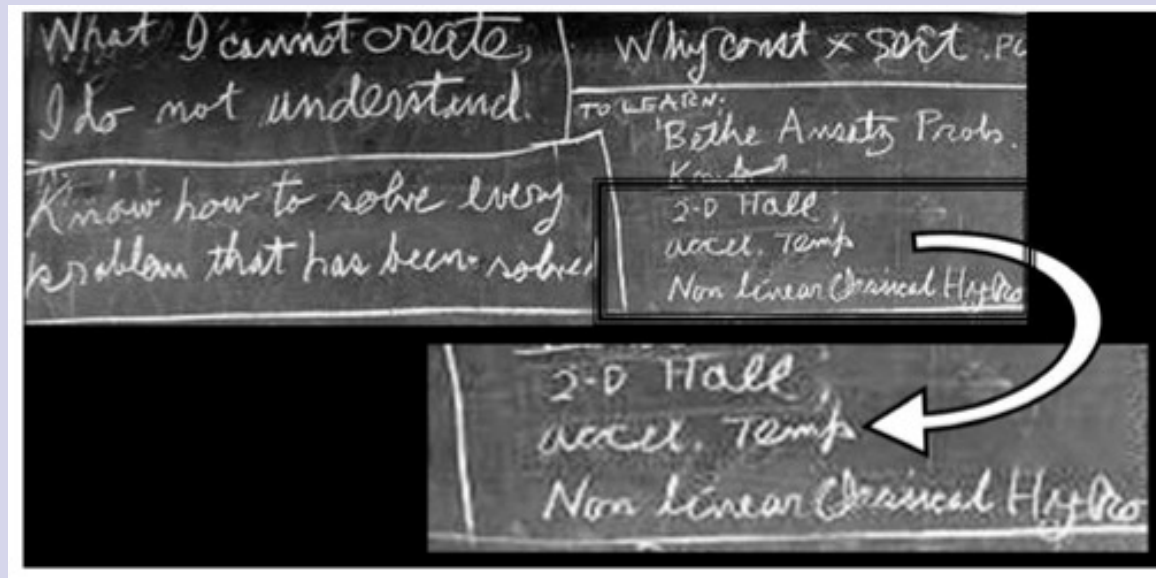 What I cannot create,
I do not understand.
Know how to solve every
problem that has been solved
Why const × sort .PO
TO LEARN:
Bethe Ansatz Probs.
Kondo
2-D Hall,
accel. Temp
Non linear Classical Hydro
2-D Hall,
accel. Temp
Non linear Classical Hydro